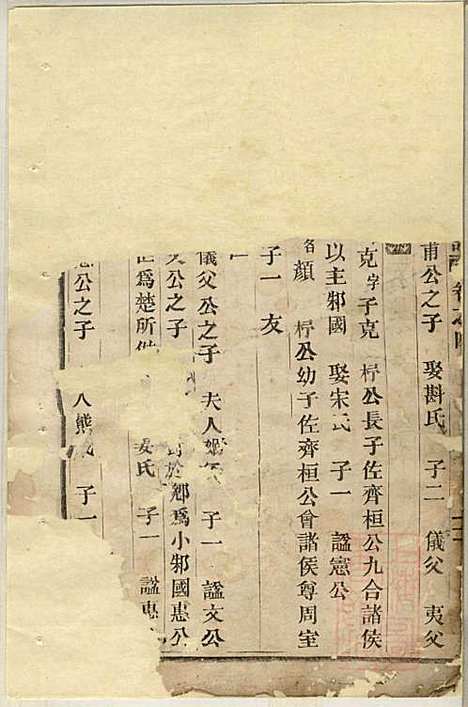 甫公之子 娶斟氏 子二 儀父 夷父
克字子克 桴公長子佐齊桓公九合諸侯
以主邾國 娶宋氏 子一 諡憲公
名顔 桴公幼子佐齊桓公會諸侯尊周室
子一 友
儀父公之子 夫人 子一 諡文公
文公之子 於郳為小邾國惠公
為楚所 姜氏 子一 諡惠
公之子 八熊 子一